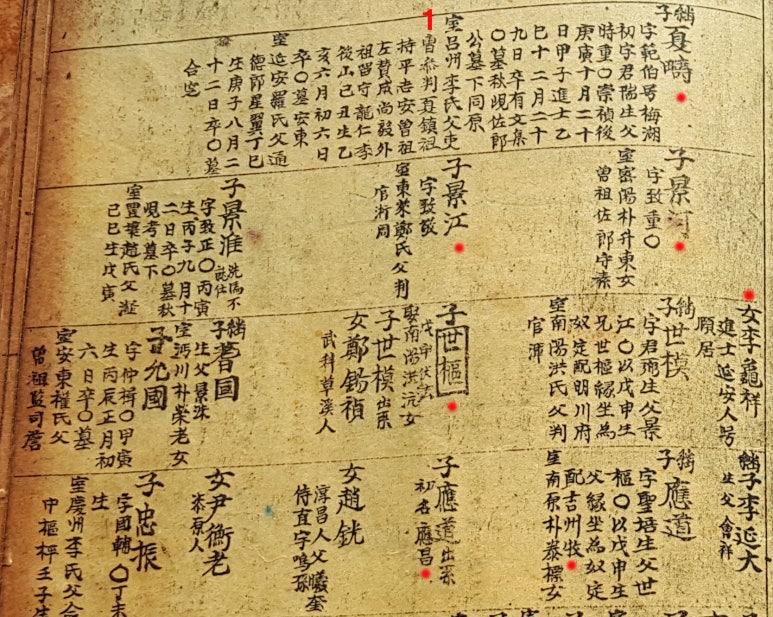 1
繼子夏疇
字範伯号梅湖
初字君瑞生父
時重○崇禎後
庚寅十月二十
日甲子進士乙
巳十二月二十
九日卒有文集
○墓秋峴佐郎
公墓下同原
室呂州李氏父吏
曹參判夏鎮祖
持平志安曽祖
左賛成尚毅外
祖留守龍仁李
後山己丑生乙
亥六月初六日
卒○墓安東
室延安羅氏父通
德郎星翼丁巳
生庚子八月二
十二日卒○墓
合窆
子景河
字致重○
室密陽朴升東女
曽祖佐郎守素
子景江
字致敬
室東萊鄭氏父判
官浙周
子景淮
字致正○丙寅
生丙子九月十
二日卒○墓秋
峴考墓下
室豊壤趙氏父
己巳生戊寅
女李龜祥
進士延安人号
頤居
繼子世模
字君甫生父景
江○以戊申生
兄世樞縁坐為
奴定配明川府
室南陽洪氏父判
官渾
子世樞
戊申伏法
娶南陽洪沅女
子世模出系
女鄭錫禎
武科草溪人
繼子蓍國
生父景洙
室沔川朴榮老女
子允國
字仲楫○甲寅
生丙辰正月初
六日卒○墓
室安東權氏父
曽祖監司
繼子李延大
生父會祥
繼子應道
字聖培生父世
樞○以戊申生
父縁坐為奴定
配吉州牧
室南原朴泰標女
子應道出系
初名應昌
女趙銧
淳昌人父曦奎
侍直字鳴
女尹衡老
柒原人
子忠振
字國輔○丁未
生
室慶州李氏父
中樞秤王子